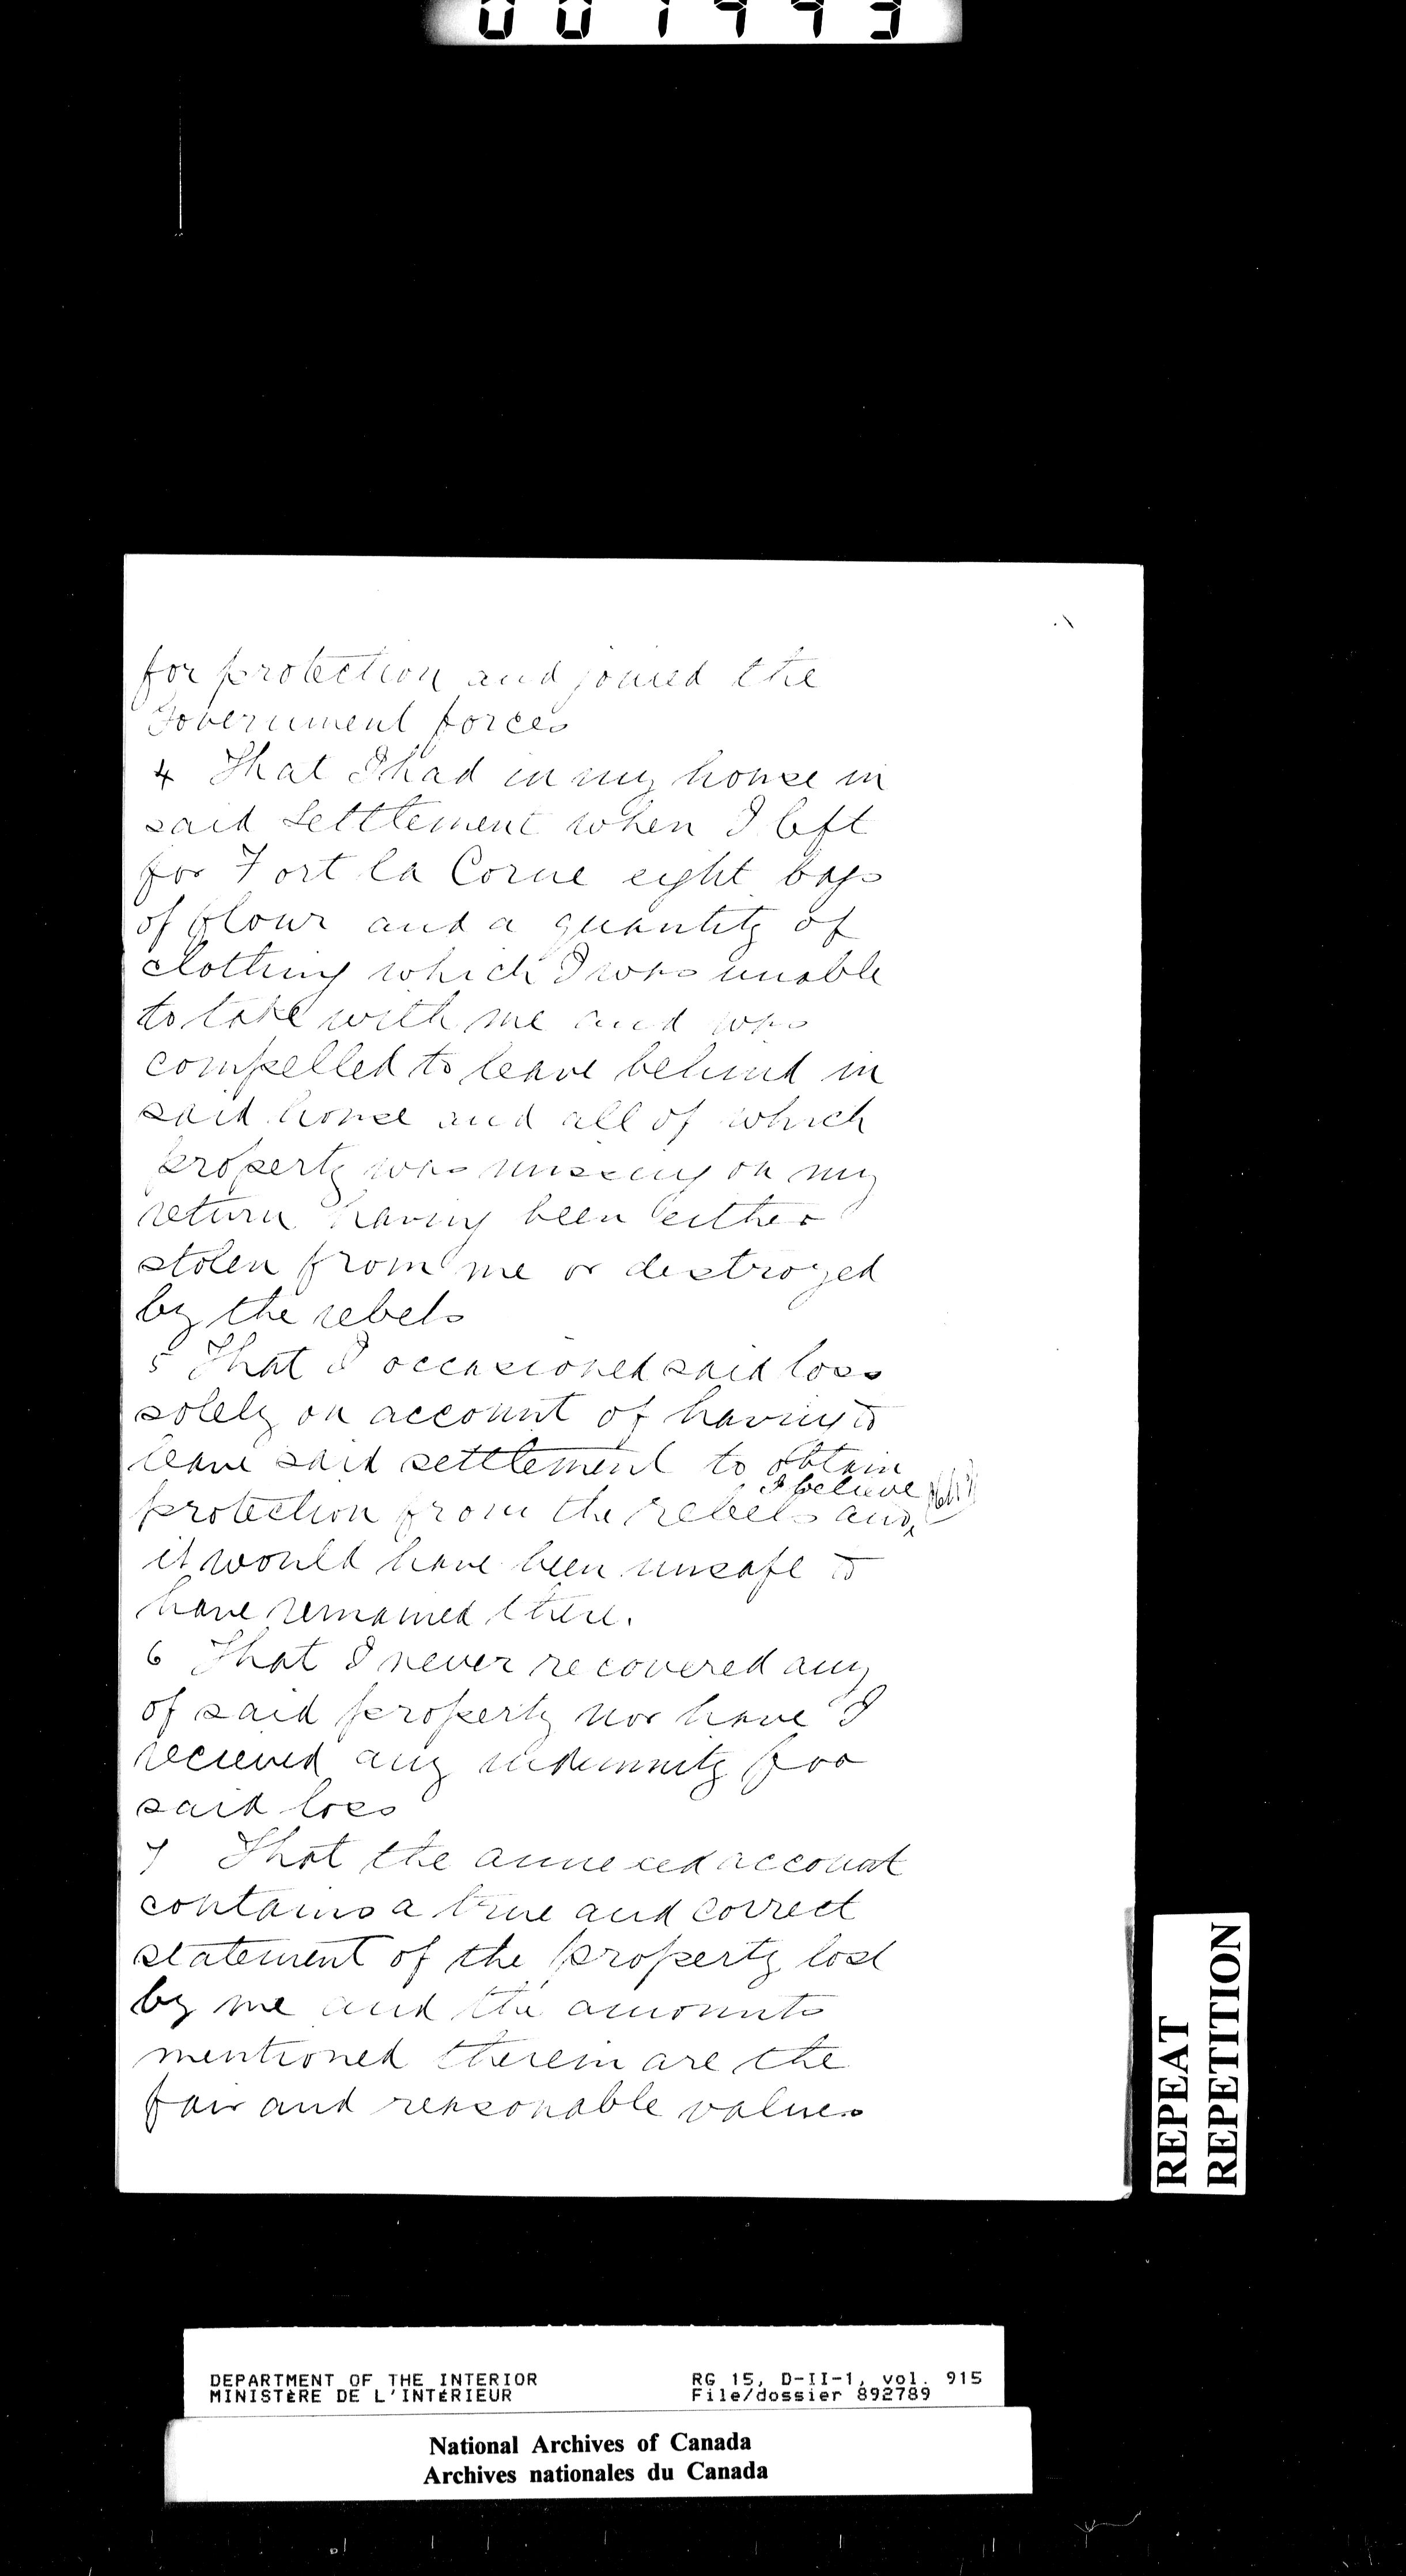 001443
for protection and joined the
Government forces
4 That I had in my house in
said Settlement when I left
for Fort la Corne eight bags
of flour and a quantity of
clothing which I was unable
to take with me and was
compelled to leave behind in
said house and all of which
property was missing on my
return having been either
stolen from me or destroyed
by the rebels
5 That I occasioned said loss
solely on account of having to
leave said settlement to obtain
I believe
protection from the rebels and
it would have been unsafe to
have remained there.
6 That I never recovered any
of said property nor have I
recieved any indemnity for
said loss
7 That the annexed account
contains a true and correct
statement of the property lost
by me and the amounts
mentioned therein are the
fair and reasonable values
REPEAT
REPETITION
DEPARTMENT OF THE INTERIOR
MINISTÈRE DE L'INTÉRIEUR
RG 15, D-II-1, vol. 915
File/dossier 892789
National Archives of Canada
Archives nationales du Canada